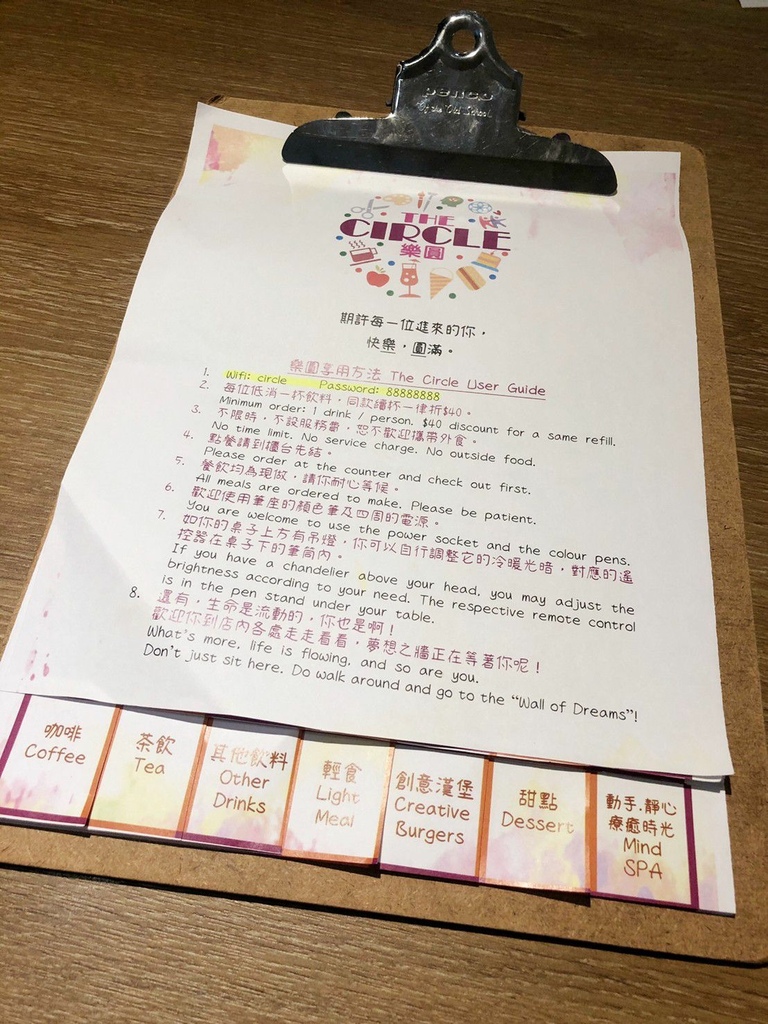 penco
By the Old School
THE
CIRCLE
樂圓
期許每一位進來的你，
快樂，圓滿。
樂圓享用方法 The Circle User Guide
1. Wifi: circle Password: 88888888
2. 每位低消一杯飲料，同款續杯一律折$40。
Minimum order: 1 drink / person. $40 discount for a same refill.
3. 不限時，不設服務費，恕不歡迎攜帶外食。
No time limit. No service charge. No outside food.
4. 點餐請到櫃台先結。
Please order at the counter and check out first.
5. 餐飲均為現做，請你耐心等候。
All meals are ordered to make. Please be patient.
6. 歡迎使用筆座的顏色筆及四周的電源。
You are welcome to use the power socket and the colour pens.
7. 如你的桌子上方有吊燈，你可以自行調整它的冷暖光暗，對應的遙
控器在桌子下的筆筒內。
If you have a chandelier above your head, you may adjust the
brightness according to your need. The respective remote control
is in the pen stand under your table.
8. 還有，生命是流動的，你也是啊！
歡迎你到店內各處走走看看，夢想之牆正在等著你呢！
What's more, life is flowing, and so are you.
Don't just sit here. Do walk around and go to the “Wall of Dreams”!
咖啡
Coffee
茶飲
Tea
其他飲料
Other
Drinks
輕食
Light
Meal
創意漢堡
Creative
Burgers
甜點
Dessert
動手.靜心
療癒時光
Mind
SPA